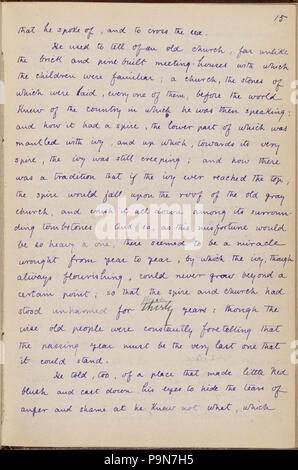 15
that he spoke of, and to cross the sea.
He used to tell of an old church, far unlike
the brick and pine built meeting-houses with which
the children were familiar; a church, the stones of
which were laid, every one of them, before the world
knew of the country in which he was then speaking:
and how it had a spire, the lower part of which was
mantled with ivy, and up which, towards its very
spire, the ivy was still creeping; and how there
was a tradition that if the ivy ever reached the top,
the spire would fall upon the roof of the old gray
church, and crush it all down among its surroun-
ding tombstones. And so, as this misfortune would
be so heavy a one, there seemed to be a miracle
wrought from year to year, by which the ivy, though
always flourishing, could never grow beyond a
certain point; so that the spire and church had
stood unharmed for thirty years: though the
wise old people were constantly foretelling that
the passing year must be the very last one that
it could stand.
He told, too, of a place that made little Ned
blush and cast down his eyes to hide the tears of
anger and shame at he knew not what, which
alamy
alamy stock photo
P9N7H5